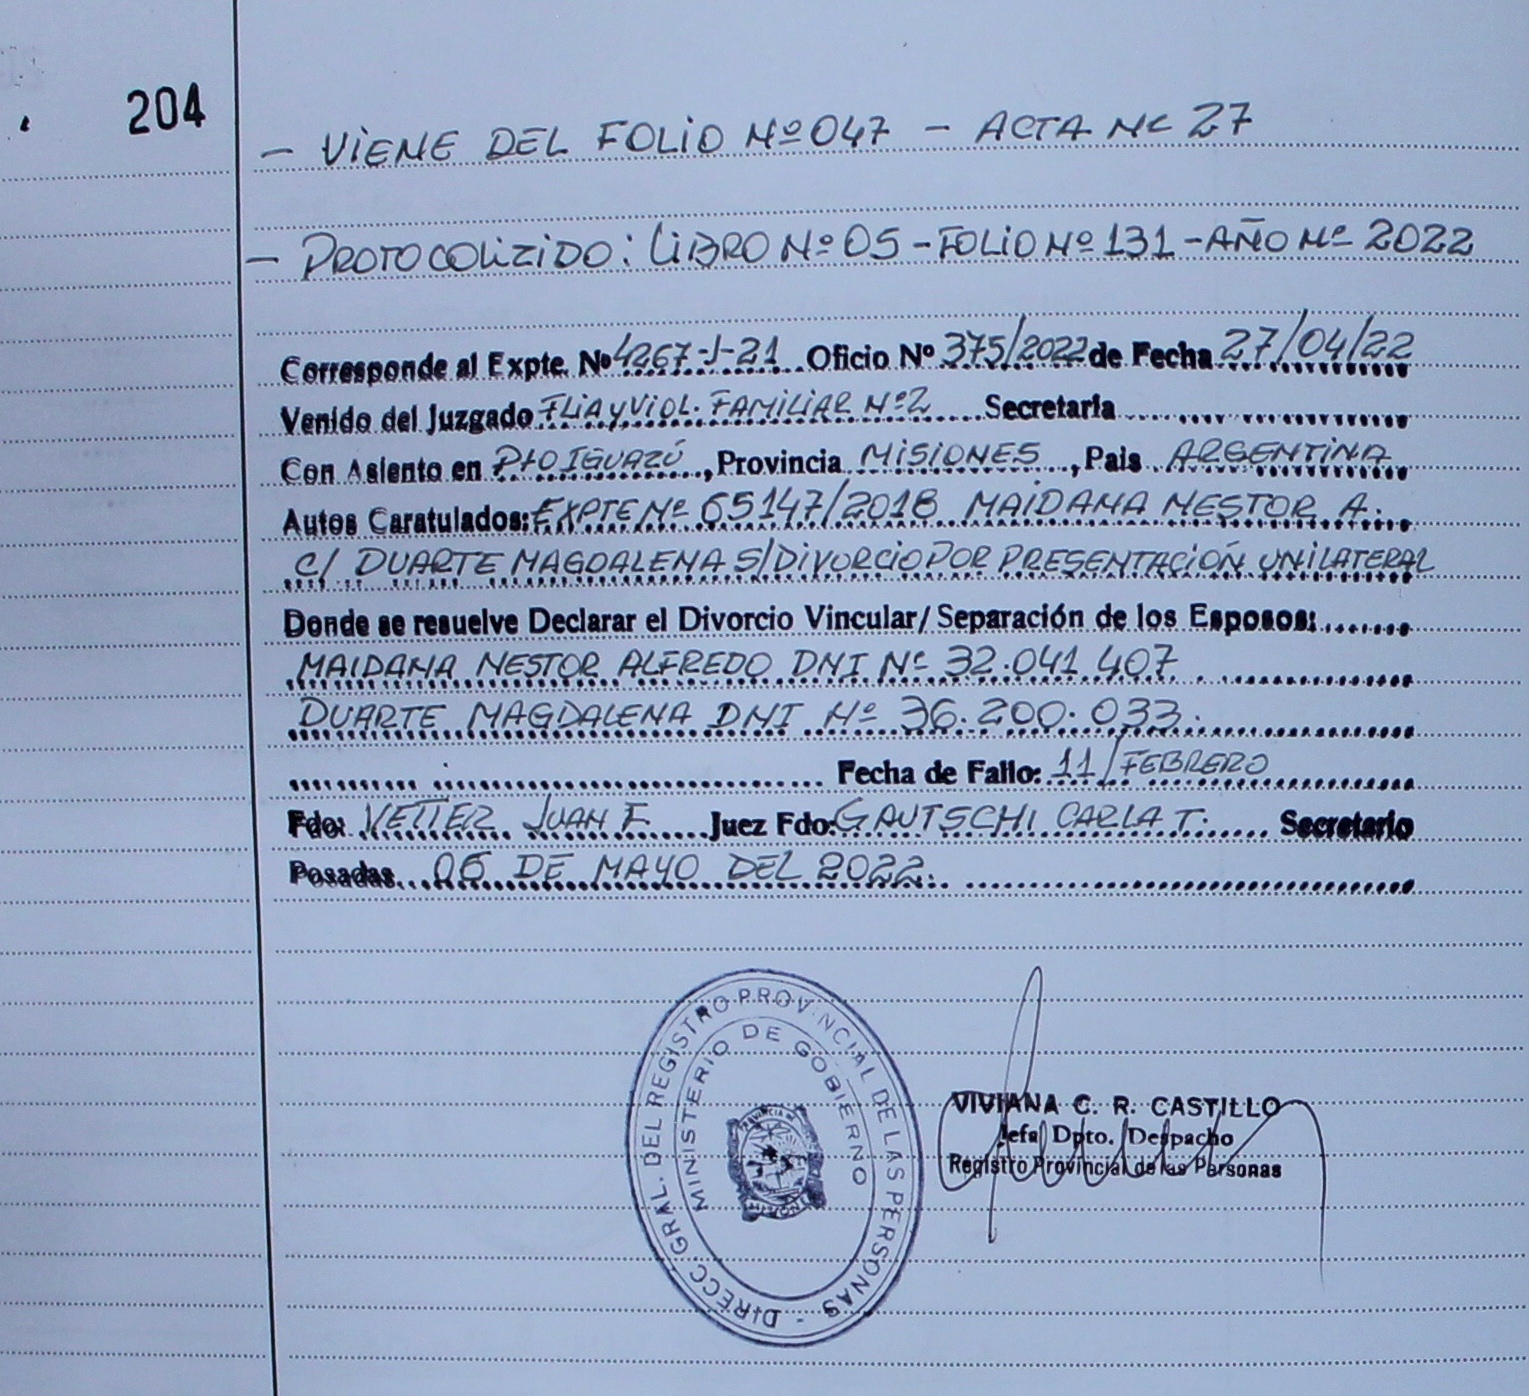 204
- VIENE DEL FOLIO Nº 047 - ACTA Nº 27
- PROTOCOLIZIDO: LIBRO Nº 05 - FOLIO Nº 131 - AÑO Nº 2022
Corresponde al Expte. Nº 4267-J-21 Oficio Nº 375/2022 de Fecha 27/04/22
Venido del Juzgado FLIA y VIOL. FAMILIAR Nº 2 Secretaria
Con Asiento en PTO IGUAZÚ, Provincia MISIONES, Pais ARGENTINA
Autos Caratulados: EXPTE Nº 65147/2018 MAIDANA NESTOR A.
C/ DUARTE MAGDALENA S/ DIVORCIO POR PRESENTACIÓN UNILATERAL
Donde se resuelve Declarar el Divorcio Vincular/ Separación de los Esposos:
MAIDANA NESTOR ALFREDO DNI Nº 32.041.407
DUARTE MAGDALENA DNI Nº 36.200.033.
Fecha de Fallo: 11/FEBRERO
Fdo: VETTER JUAN F. Juez Fdo: GAUTSCHI CARLA T. Secretario
Posadas, 06 DE MAYO DEL 2022.
DIRECC. GRAL. DEL REGISTRO PROVINCIAL DE LAS PERSONAS
MINISTERIO DE GOBIERNO
PROVINCIA DE
MISIONES
VIVIANA C. R. CASTILLO
Jefa Dpto. Despacho
Registro Provincial de las Personas